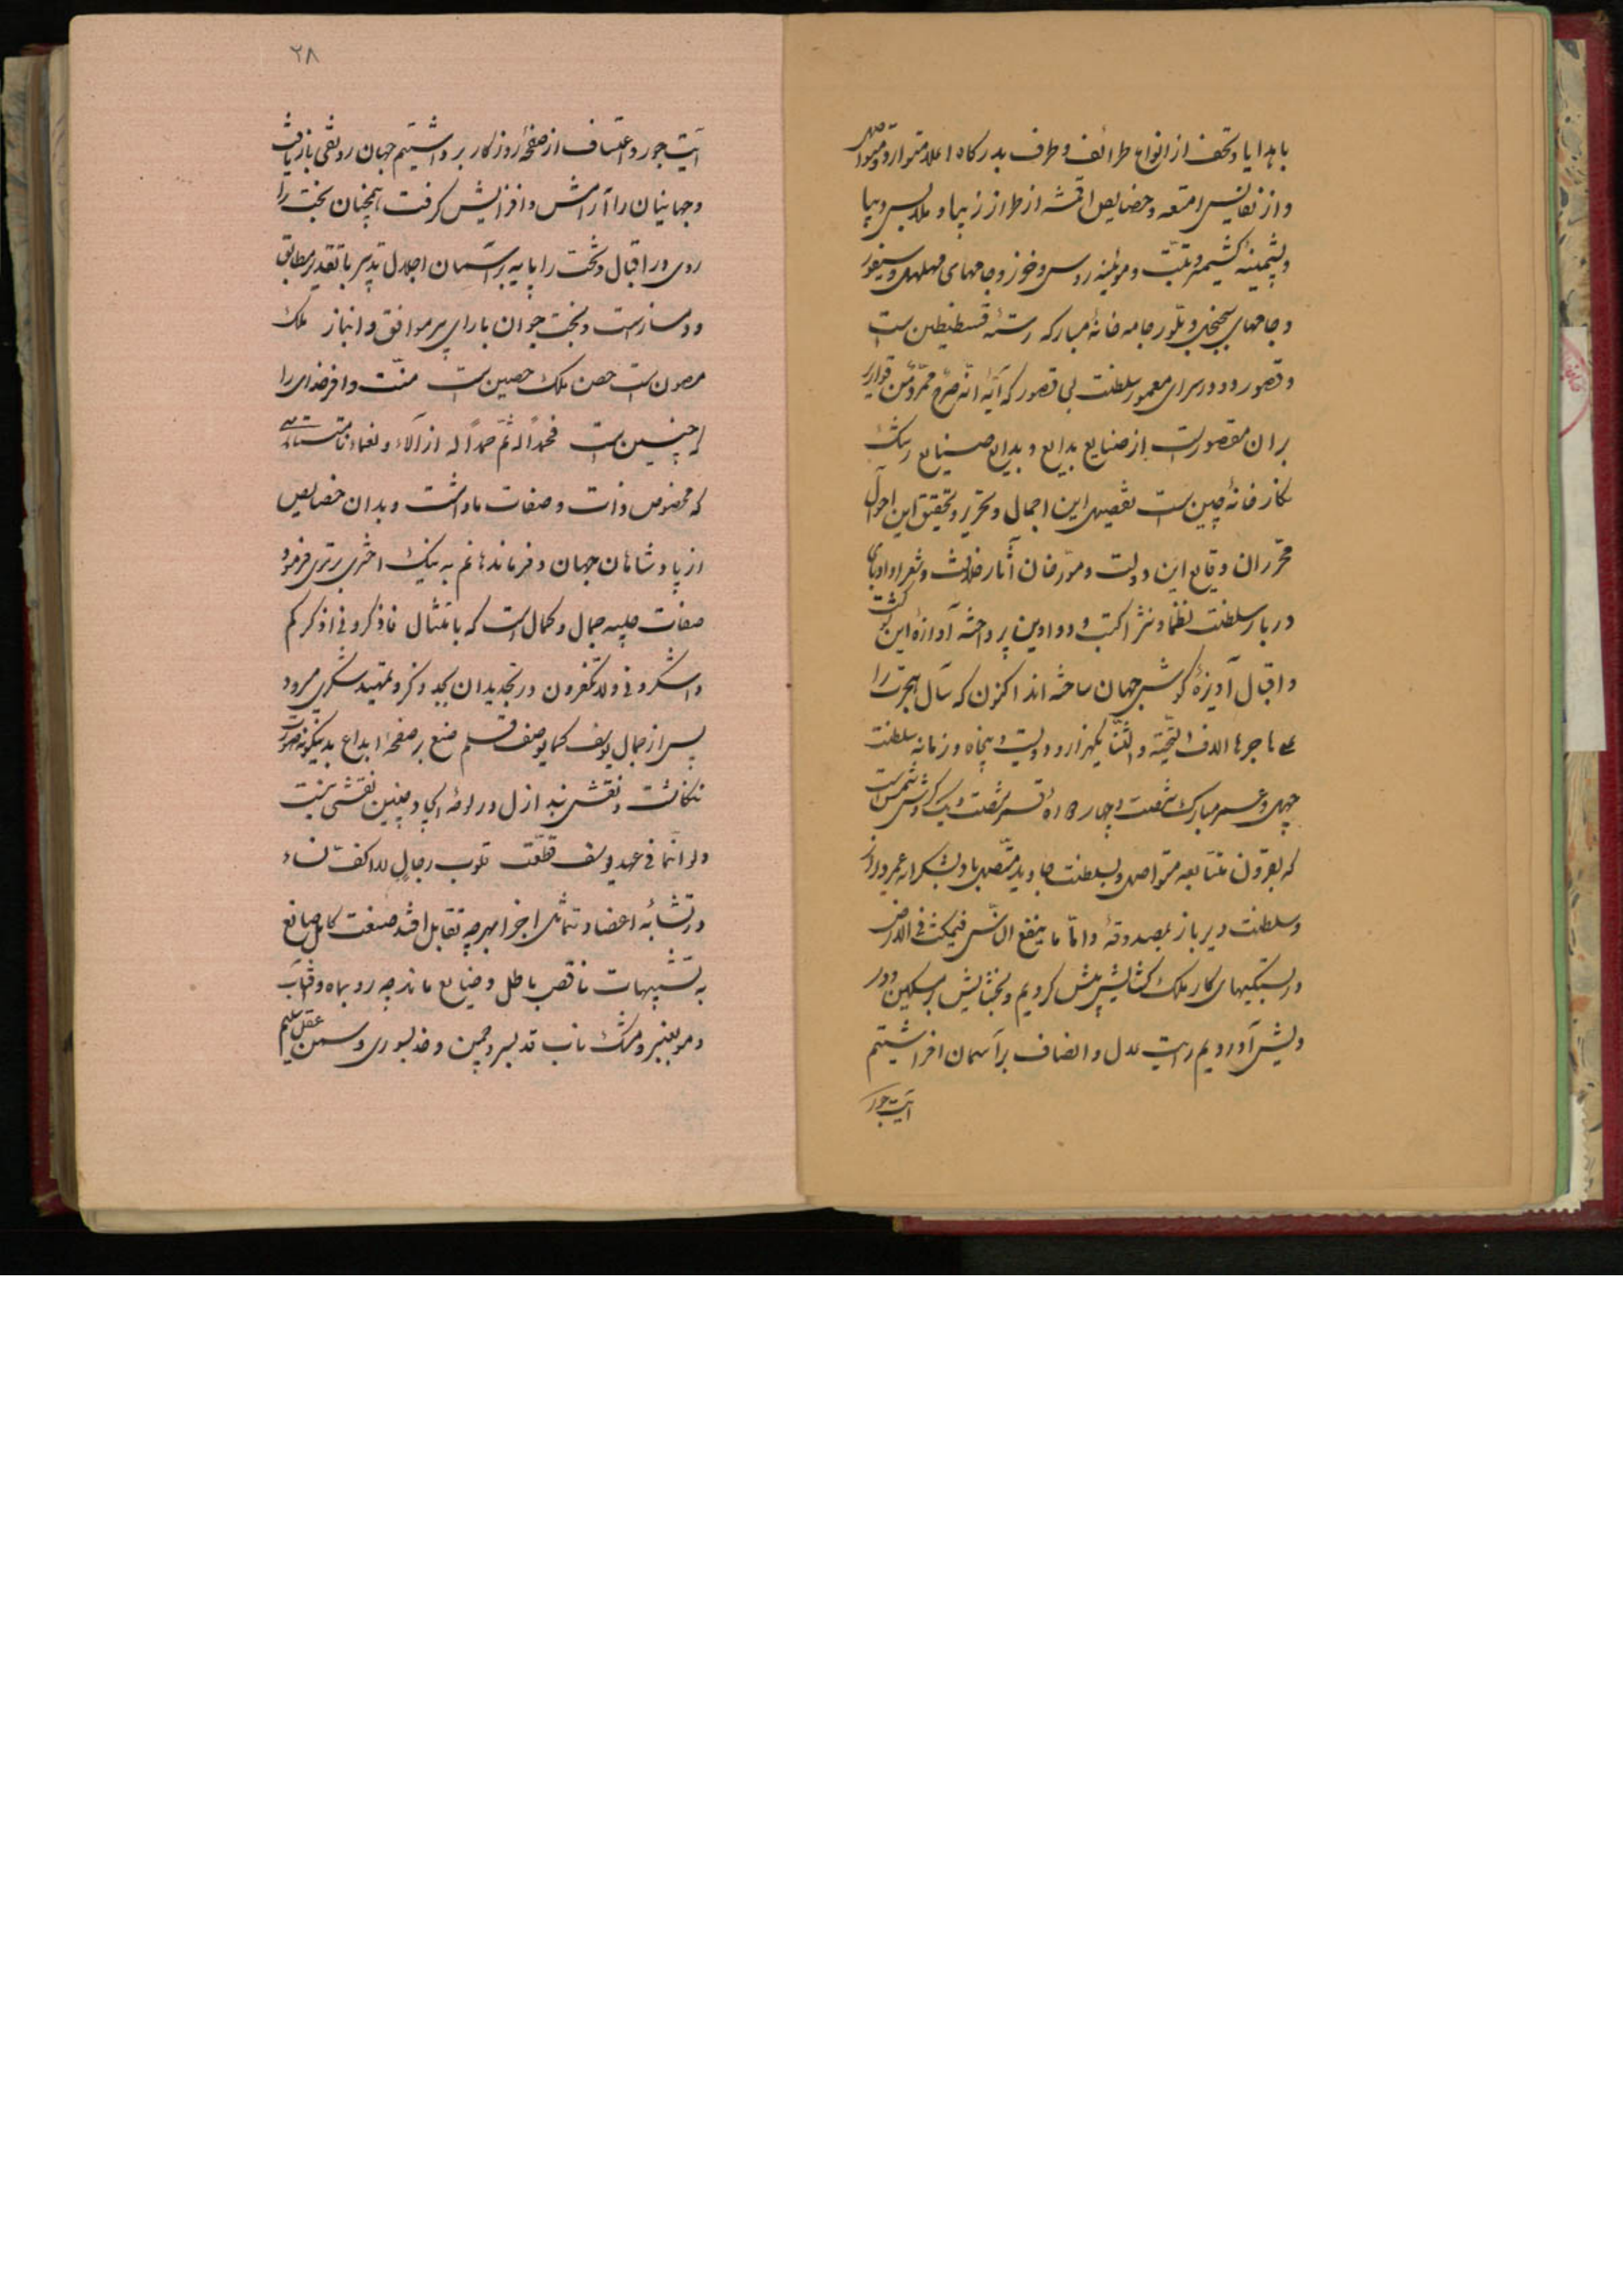 با هدایا و تحف از انواع طرائف و طرف بدرگاه اعلا متوارد و متواصل
و از نفایس امتعه و خصایص اقمشه از طراز زیبا و ملابس دیبا
و پشمینه کشمیر و تبت و موئینه روس و خوز و جامهای
و جامهای و بلور جامه خانه مبارکه رسته قسطنطین است
و قصور و دور سرای معمور سلطنت بی قصور که آیهٔ انه صرح ممرد من قواریر
بران مقصور است از صنایع بدایع و بدایع صنایع رشک
نگار خانهٔ چین است تفصیل این اجمال و تحریر و تحقیق این احوال
محرران وقایع این دولت و مورخان آثار خلافت و شعرا و ادبای
دربار سلطنت نظما و نثرا کتب و دواوین پرداخته آوازهٔ این شوکت
و اقبال آویزهٔ گوش جهان ساخته اند اکنون که سال هجرت را
علی هاجرها الف التحیة و الثنا یکهزار و دویست و پنجاه و زمانه سلطنت
چهل و عمر مبارک شصت و چهار
که بقرون متتابعه متواصل و بسلطنت جاوید متصل باد بشکرانه عمر دراز
و سلطنت دیرباز بمصدوقهٔ و اما ما ینفع الناس فیمکث فی الارض
در بستگیهای کار ملک گشایش پیش کردیم و بخشایش بر مسکین و در
ویش آوردیم رایت عدل و انصاف بر آسمان افراشتیم
آیت جور
۲۸
آیت جور و اعتساف از صفحهٔ روزگار برداشتیم جهان رونقی باز یافت
و جهانیان را آرامش و افزایش گرفت همچنان بخت را
روی در اقبال و تخت را پایه بر آسمان اجلال تدبیر با تقدیر مطابق
و دمساز است و بخت جوان با رای پیر موافق و انباز ملک
مصون است حصن ملک حصین است منت وافر خدای را
که چنین است فحمدا له ثم حمدا له از آلاء و نعماء نامتناهی
که مخصوص ذات و صفات ما داشت و بدان خصایص
از پادشاهان جهان و فرماندهانم به نیک اختری برتری فرمود
صفات حلیه جمال و کمال است که بامتثال فاذکرونی اذکرکم
واشکروا لی ولا تکفرون در تجدید آن بجد و ذکر و تمهید شکر می رود
پس از جمال یوسف کما یوصف قلم صنع بر صفحهٔ ابداع بدینگونه صورت
ننگاشت و نقش بند ازل در لوحهٔ ایجاد چنین نقشی نبست
ولو انها فی عهد یوسف قطعت قلوب رجال لا اکف نساء
در تشابه اعضا و تماثل اجزا بهر چه تقابل افتد صنعت کامل صانع
به تشبیهات ناقص باطل و ضایع ماند چه رو بماه و آفتاب
و مو بعنبر و مشک ناب قد بسرو چمن و خد بسوری و سمن عقل سلیم